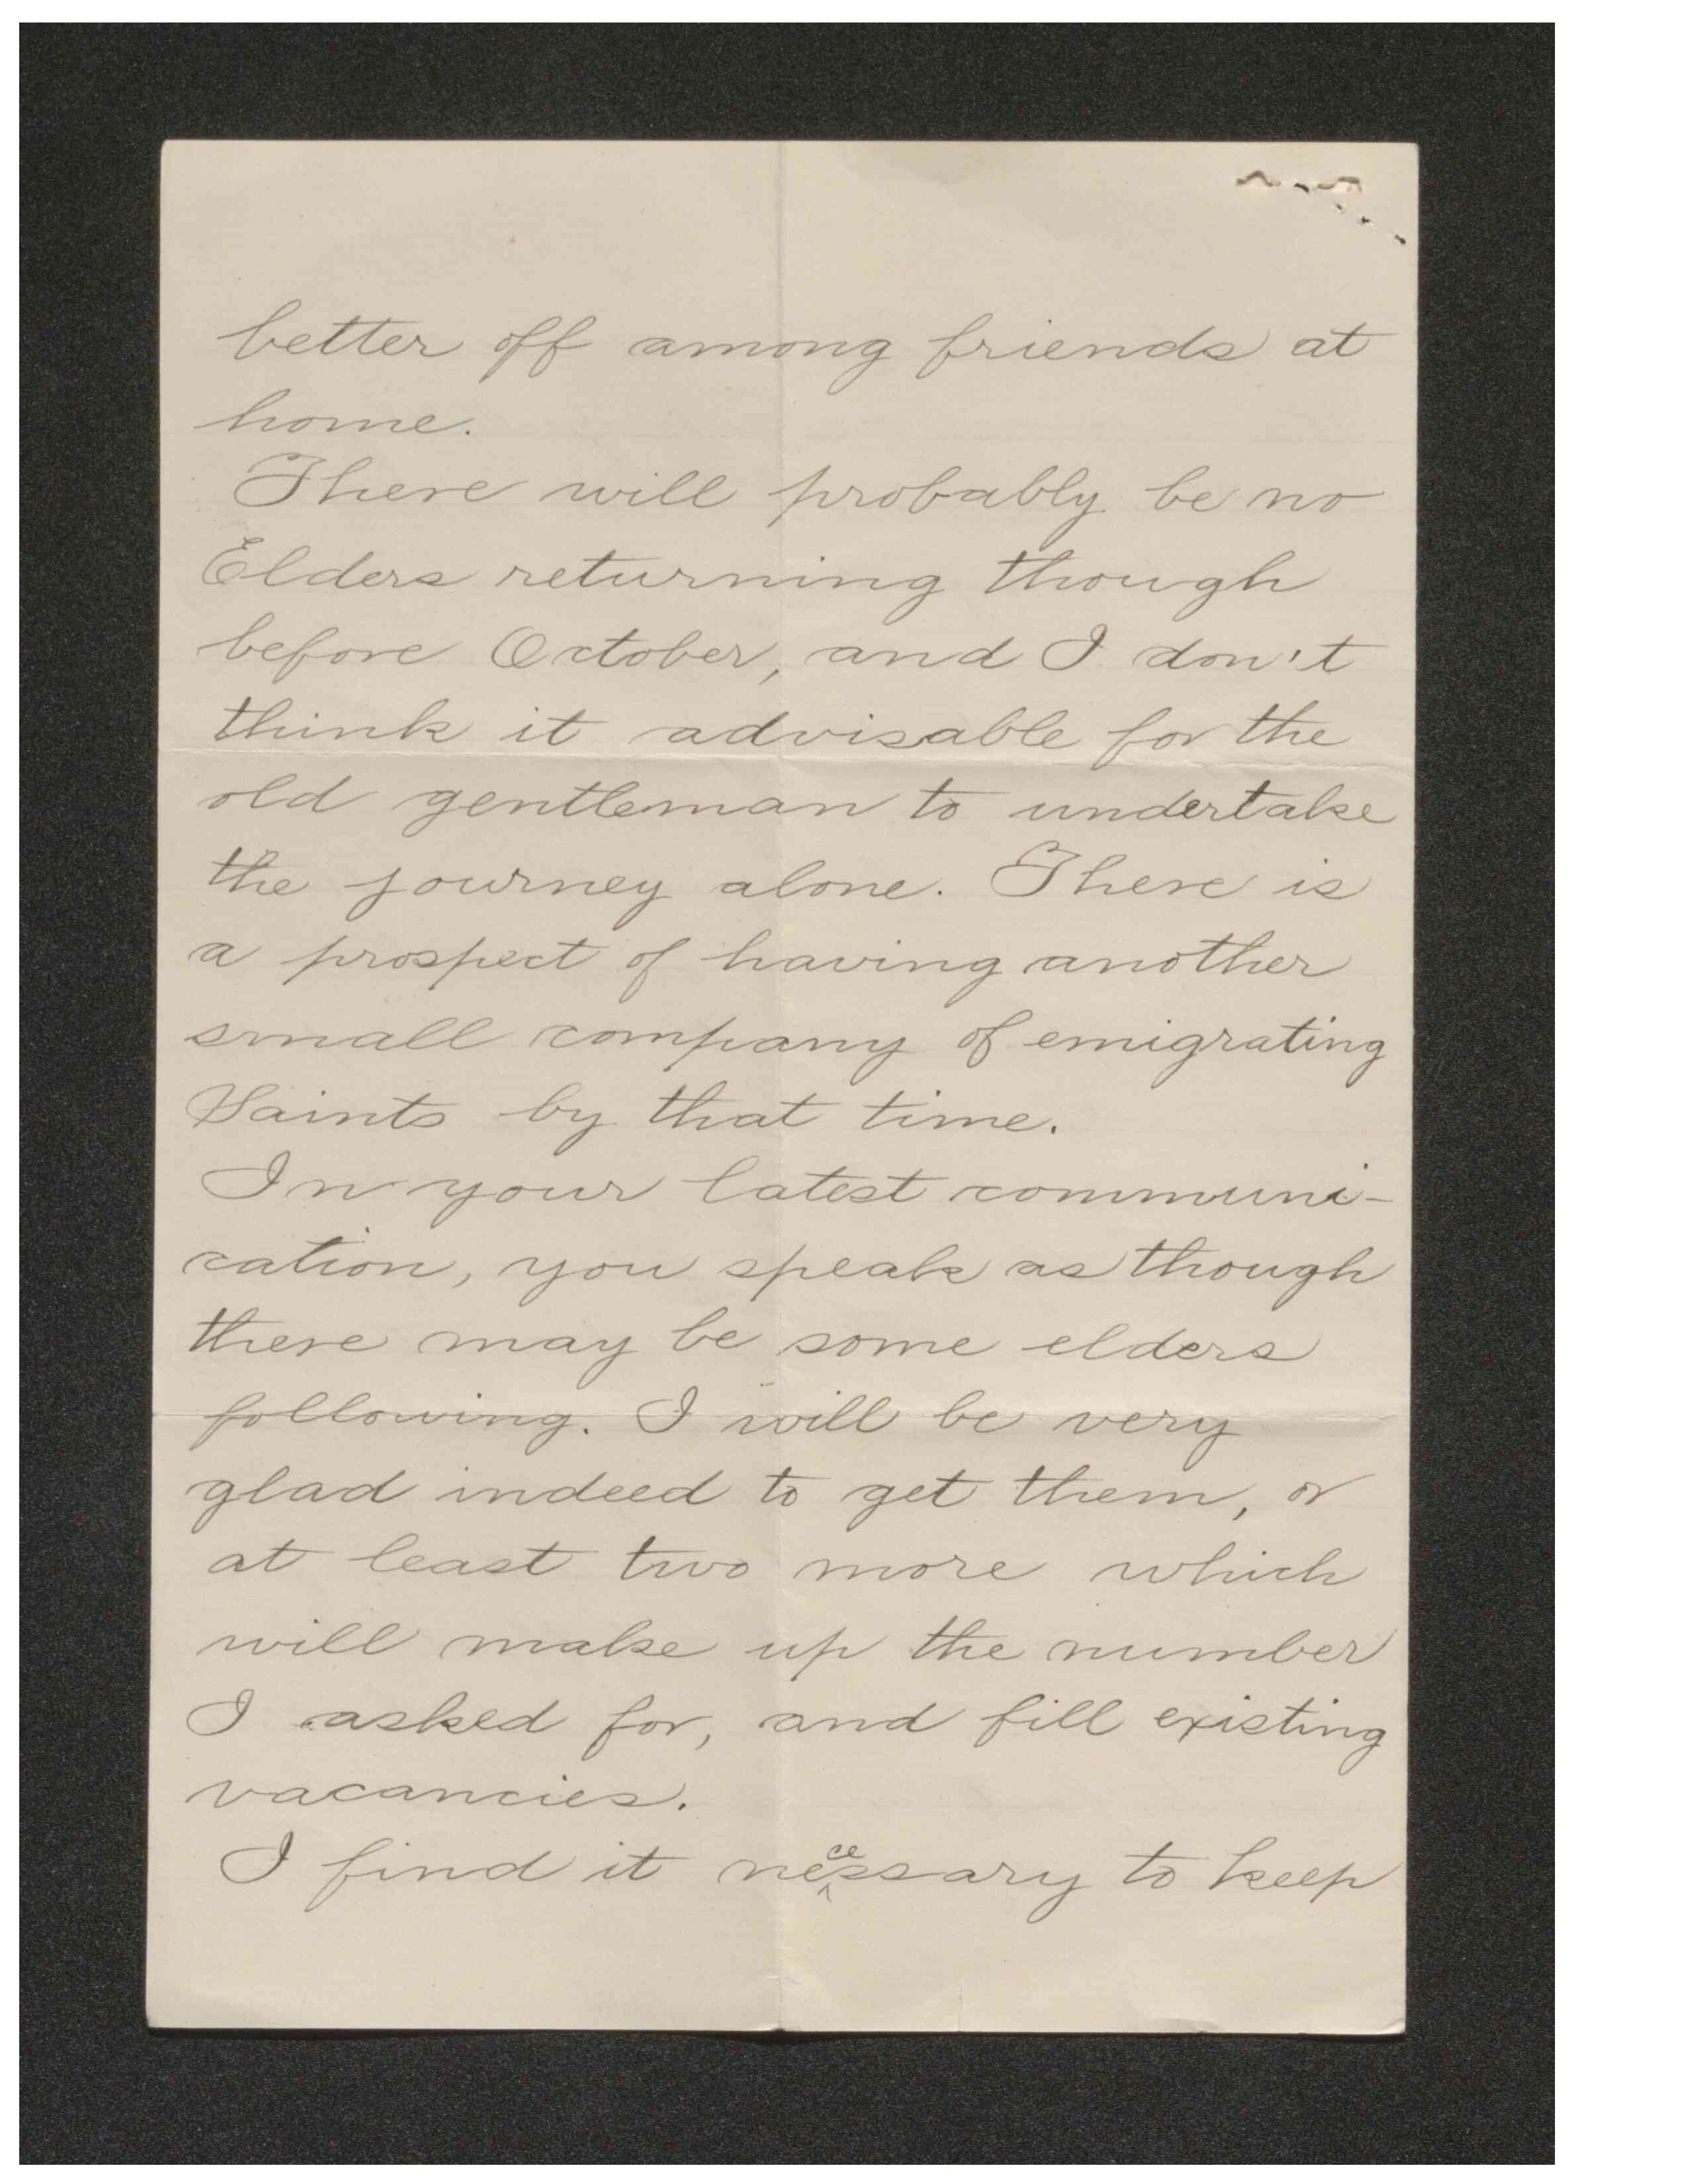 better off among friends at
home.
There will probably be no
Elders returning though
before October, and I don't
think it advisable for the
old gentleman to undertake
the journey alone. There is
a prospect of having another
small company of emigrating
Saints by that time.
In your latest communi-
cation, you speak as though
there may be some elders
following. I will be very
glad indeed to get them, or
at least two more which
will make up the number
I asked for, and fill existing
vacancies.
I find it necessary to keep